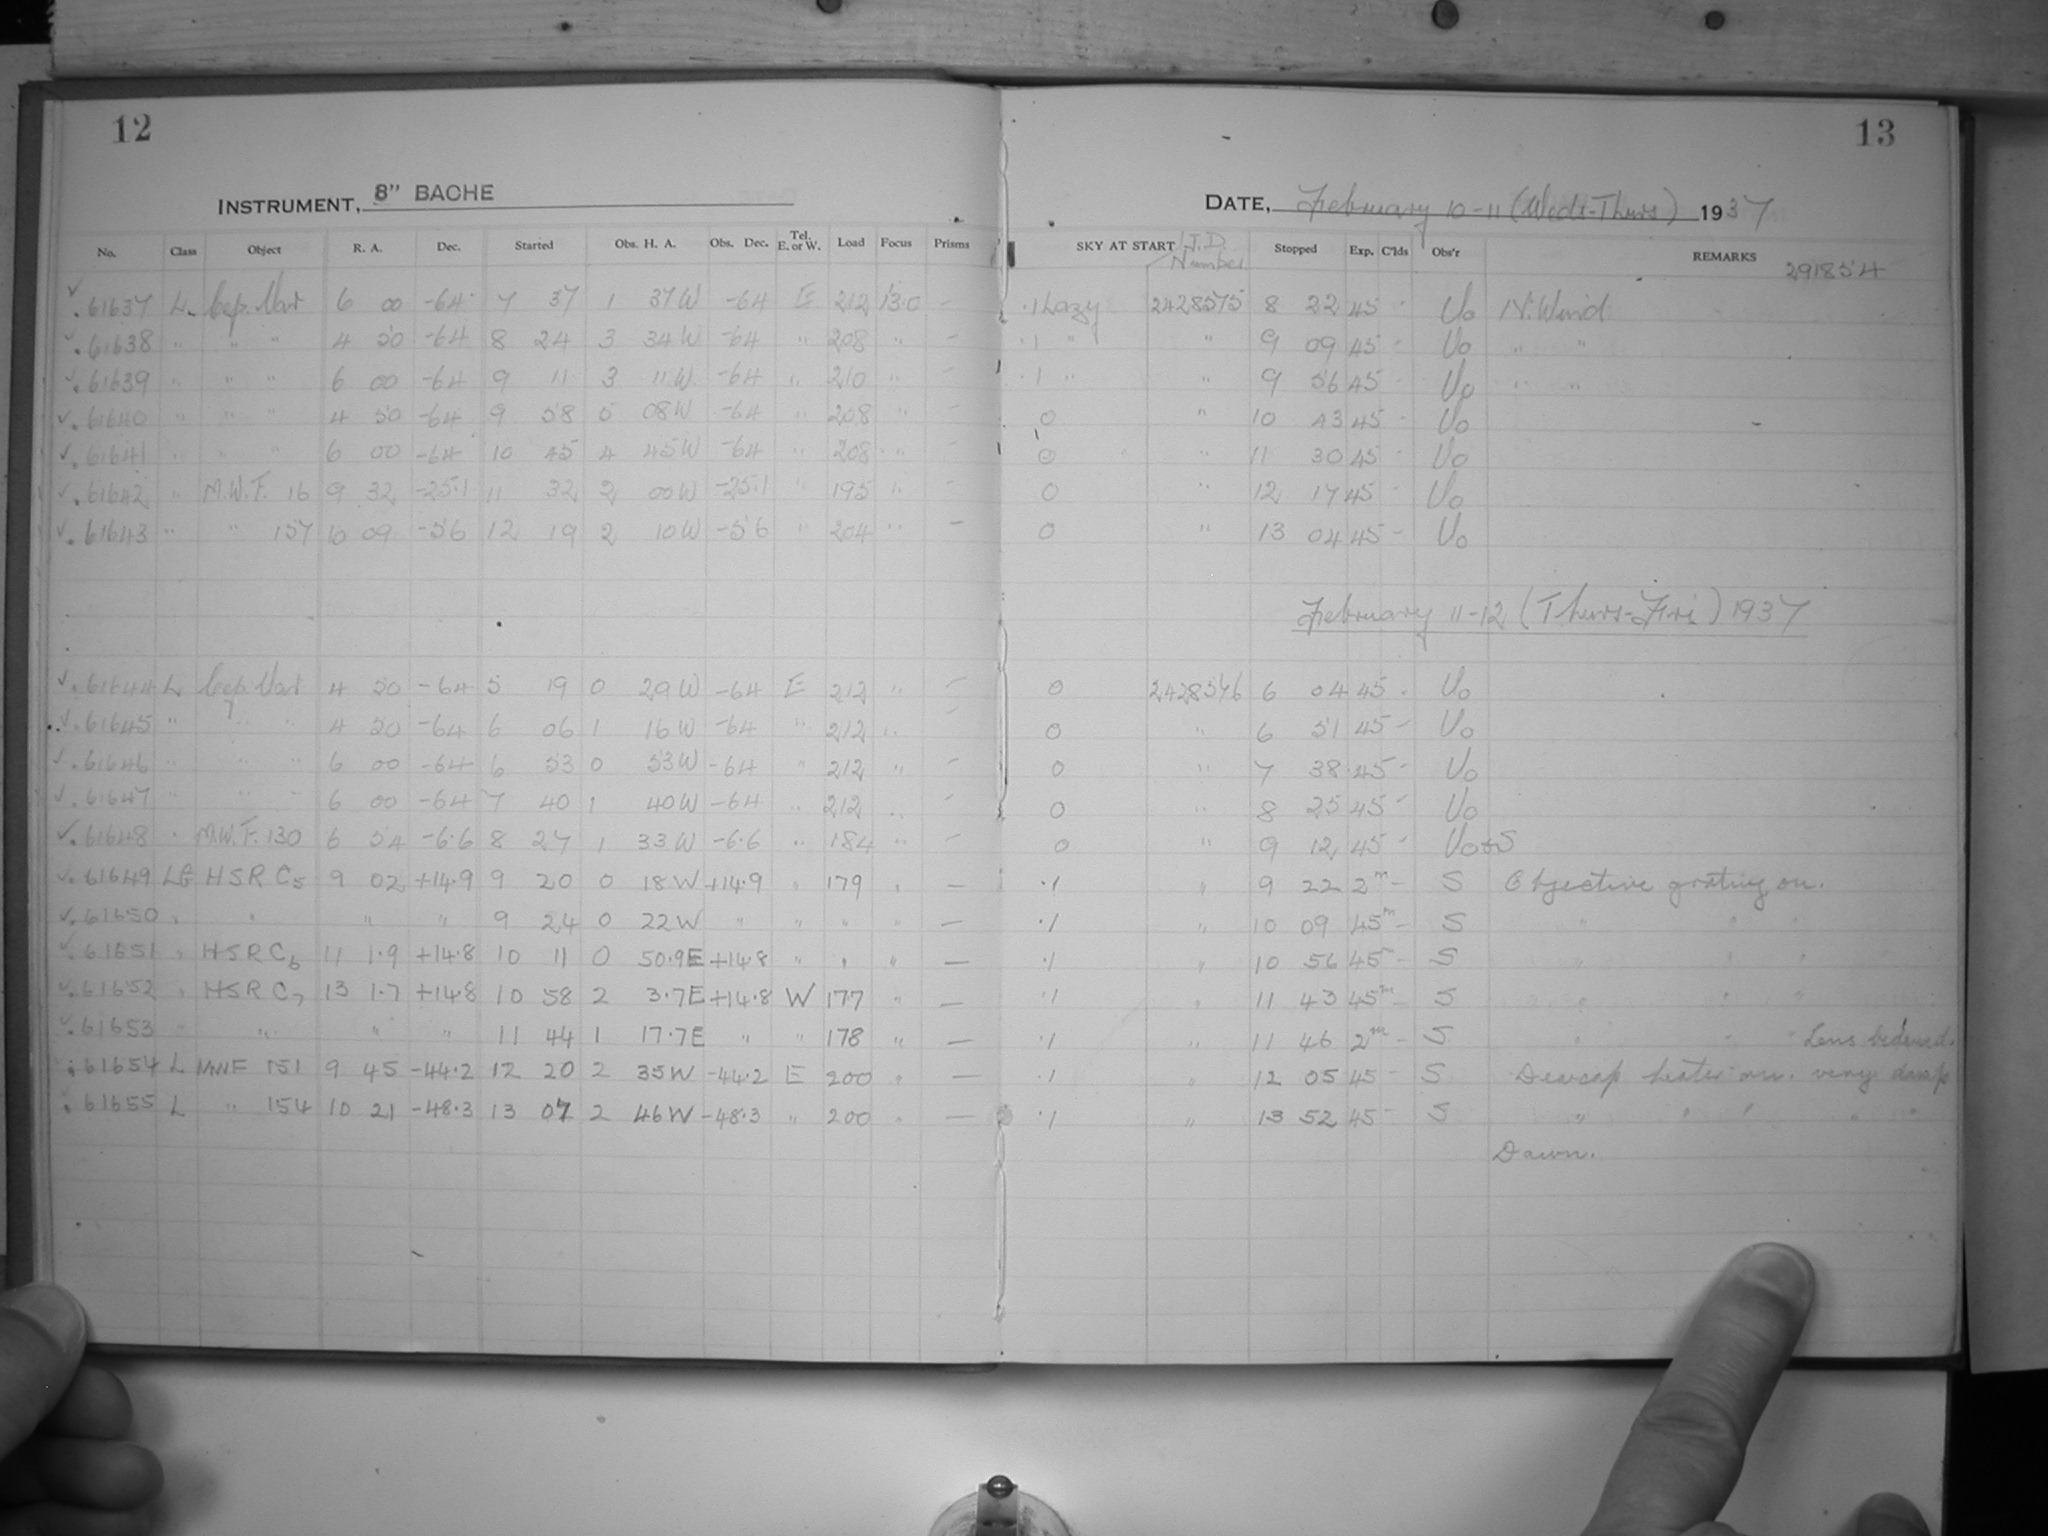 12
INSTRUMENT, 8" BACHE
No. Class Object R. A. Dec. Started Obs. H. A. Obs. Dec. Tel. E. or W. Load Focus Prisms
61637 L. Cep. Var 6 00 -64 7 37 1 37W -64 E 212 13.0 —
61638 " " " 4 50 -64 8 24 3 34W -64 " 208 " —
61639 " " " 6 00 -64 9 11 3 11W -64 " 210 " —
61640 " " " 4 50 -64 9 58 5 08W -64 " 208 " —
61641 " " " 6 00 -64 10 45 4 45W -64 " 208 " —
61642 " M.W.F. 16 9 32 -25.1 11 32 2 00W -25.1 " 195 " —
61643 " " 157 10 09 -56 12 19 2 10W -56 " 204 " —
61644 L Cep Var 4 50 -64 5 19 0 29W -64 E 212 " —
61645 " " " 4 50 -64 6 06 1 16W -64 " 212 " —
61646 " " " 6 00 -64 6 53 0 53W -64 " 212 " —
61647 " " " 6 00 -64 7 40 1 40W -64 " 212 " —
61648 " M.W.F. 130 6 54 -6.6 8 27 1 33W -6.6 " 184 " —
61649 LG HSR C5 9 02 +14.9 9 20 0 18W +14.9 " 179 " —
61650 " " " " 9 24 0 22W " " " " —
61651 " HSR C6 11 1.9 +14.8 10 11 0 50.9E +14.8 " " " —
61652 " HSR C7 13 1.7 +14.8 10 58 2 3.7E +14.8 W 177 " —
61653 " " " " 11 44 1 17.7E " " 178 " —
61654 L MWF 151 9 45 -44.2 12 20 2 35W -44.2 E 200 " —
61655 L " 154 10 21 -48.3 13 07 2 46W -48.3 " 200 " —
13
DATE, February 10-11 (Weds-Thurs) 1937
SKY AT START J.D. Number Stopped Exp. C'lds Obs'r REMARKS
291854
.1 Hazy 2428575 8 22 45 - Uo N. Wind
.1 " " 9 09 45 - Uo " "
.1 " " 9 56 45 - Uo " "
0 " 10 43 45 - Uo
0 " 11 30 45 - Uo
0 " 12 17 45 - Uo
0 " 13 04 45 - Uo
February 11-12 (Thurs-Fri) 1937
0 2428576 6 04 45 - Uo
0 " 6 51 45 - Uo
0 " 7 38 45 - Uo
0 " 8 25 45 - Uo
0 " 9 12 45 - Uo+S
.1 " 9 22 2m - S Objective grating on.
.1 " 10 09 45m - S " " "
.1 " 10 56 45m - S " " "
.1 " 11 43 45m - S " " "
.1 " 11 46 2m - S " " " Lens bedewed.
.1 " 12 05 45 - S Dewcap heater on. very damp
.1 " 13 52 45 - S " " " " "
Dawn.